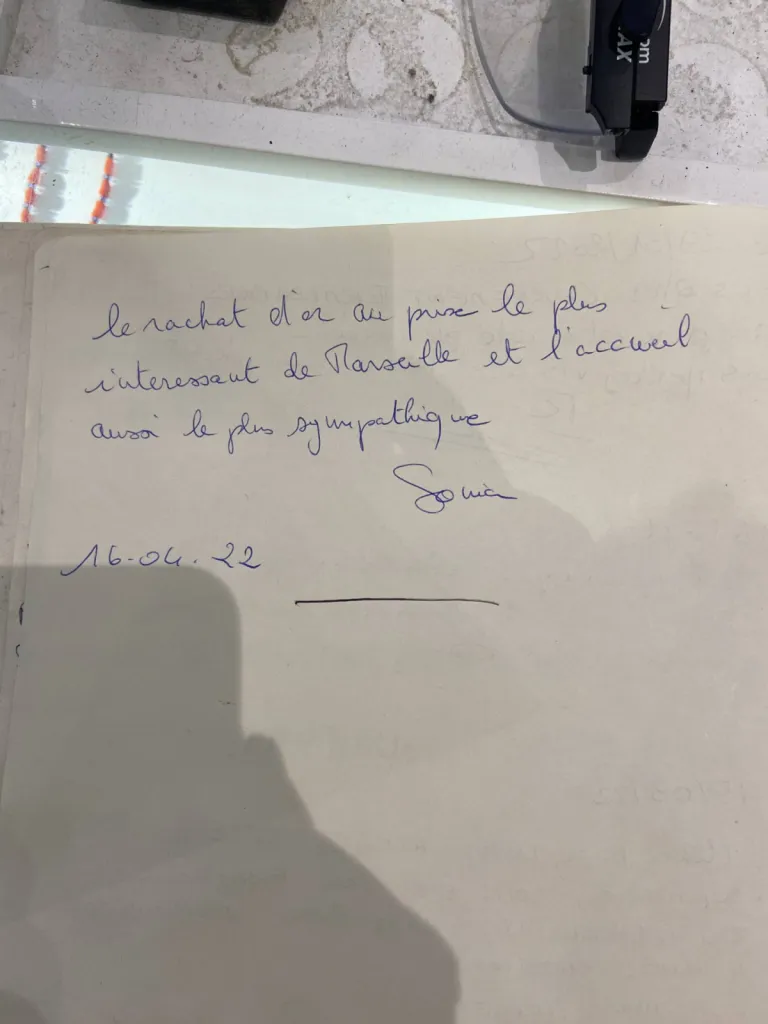 le rachat d'or au prix le plus
interessant de Marseille et l'accueil
aussi le plus sympathique
Sonia
16-04.22